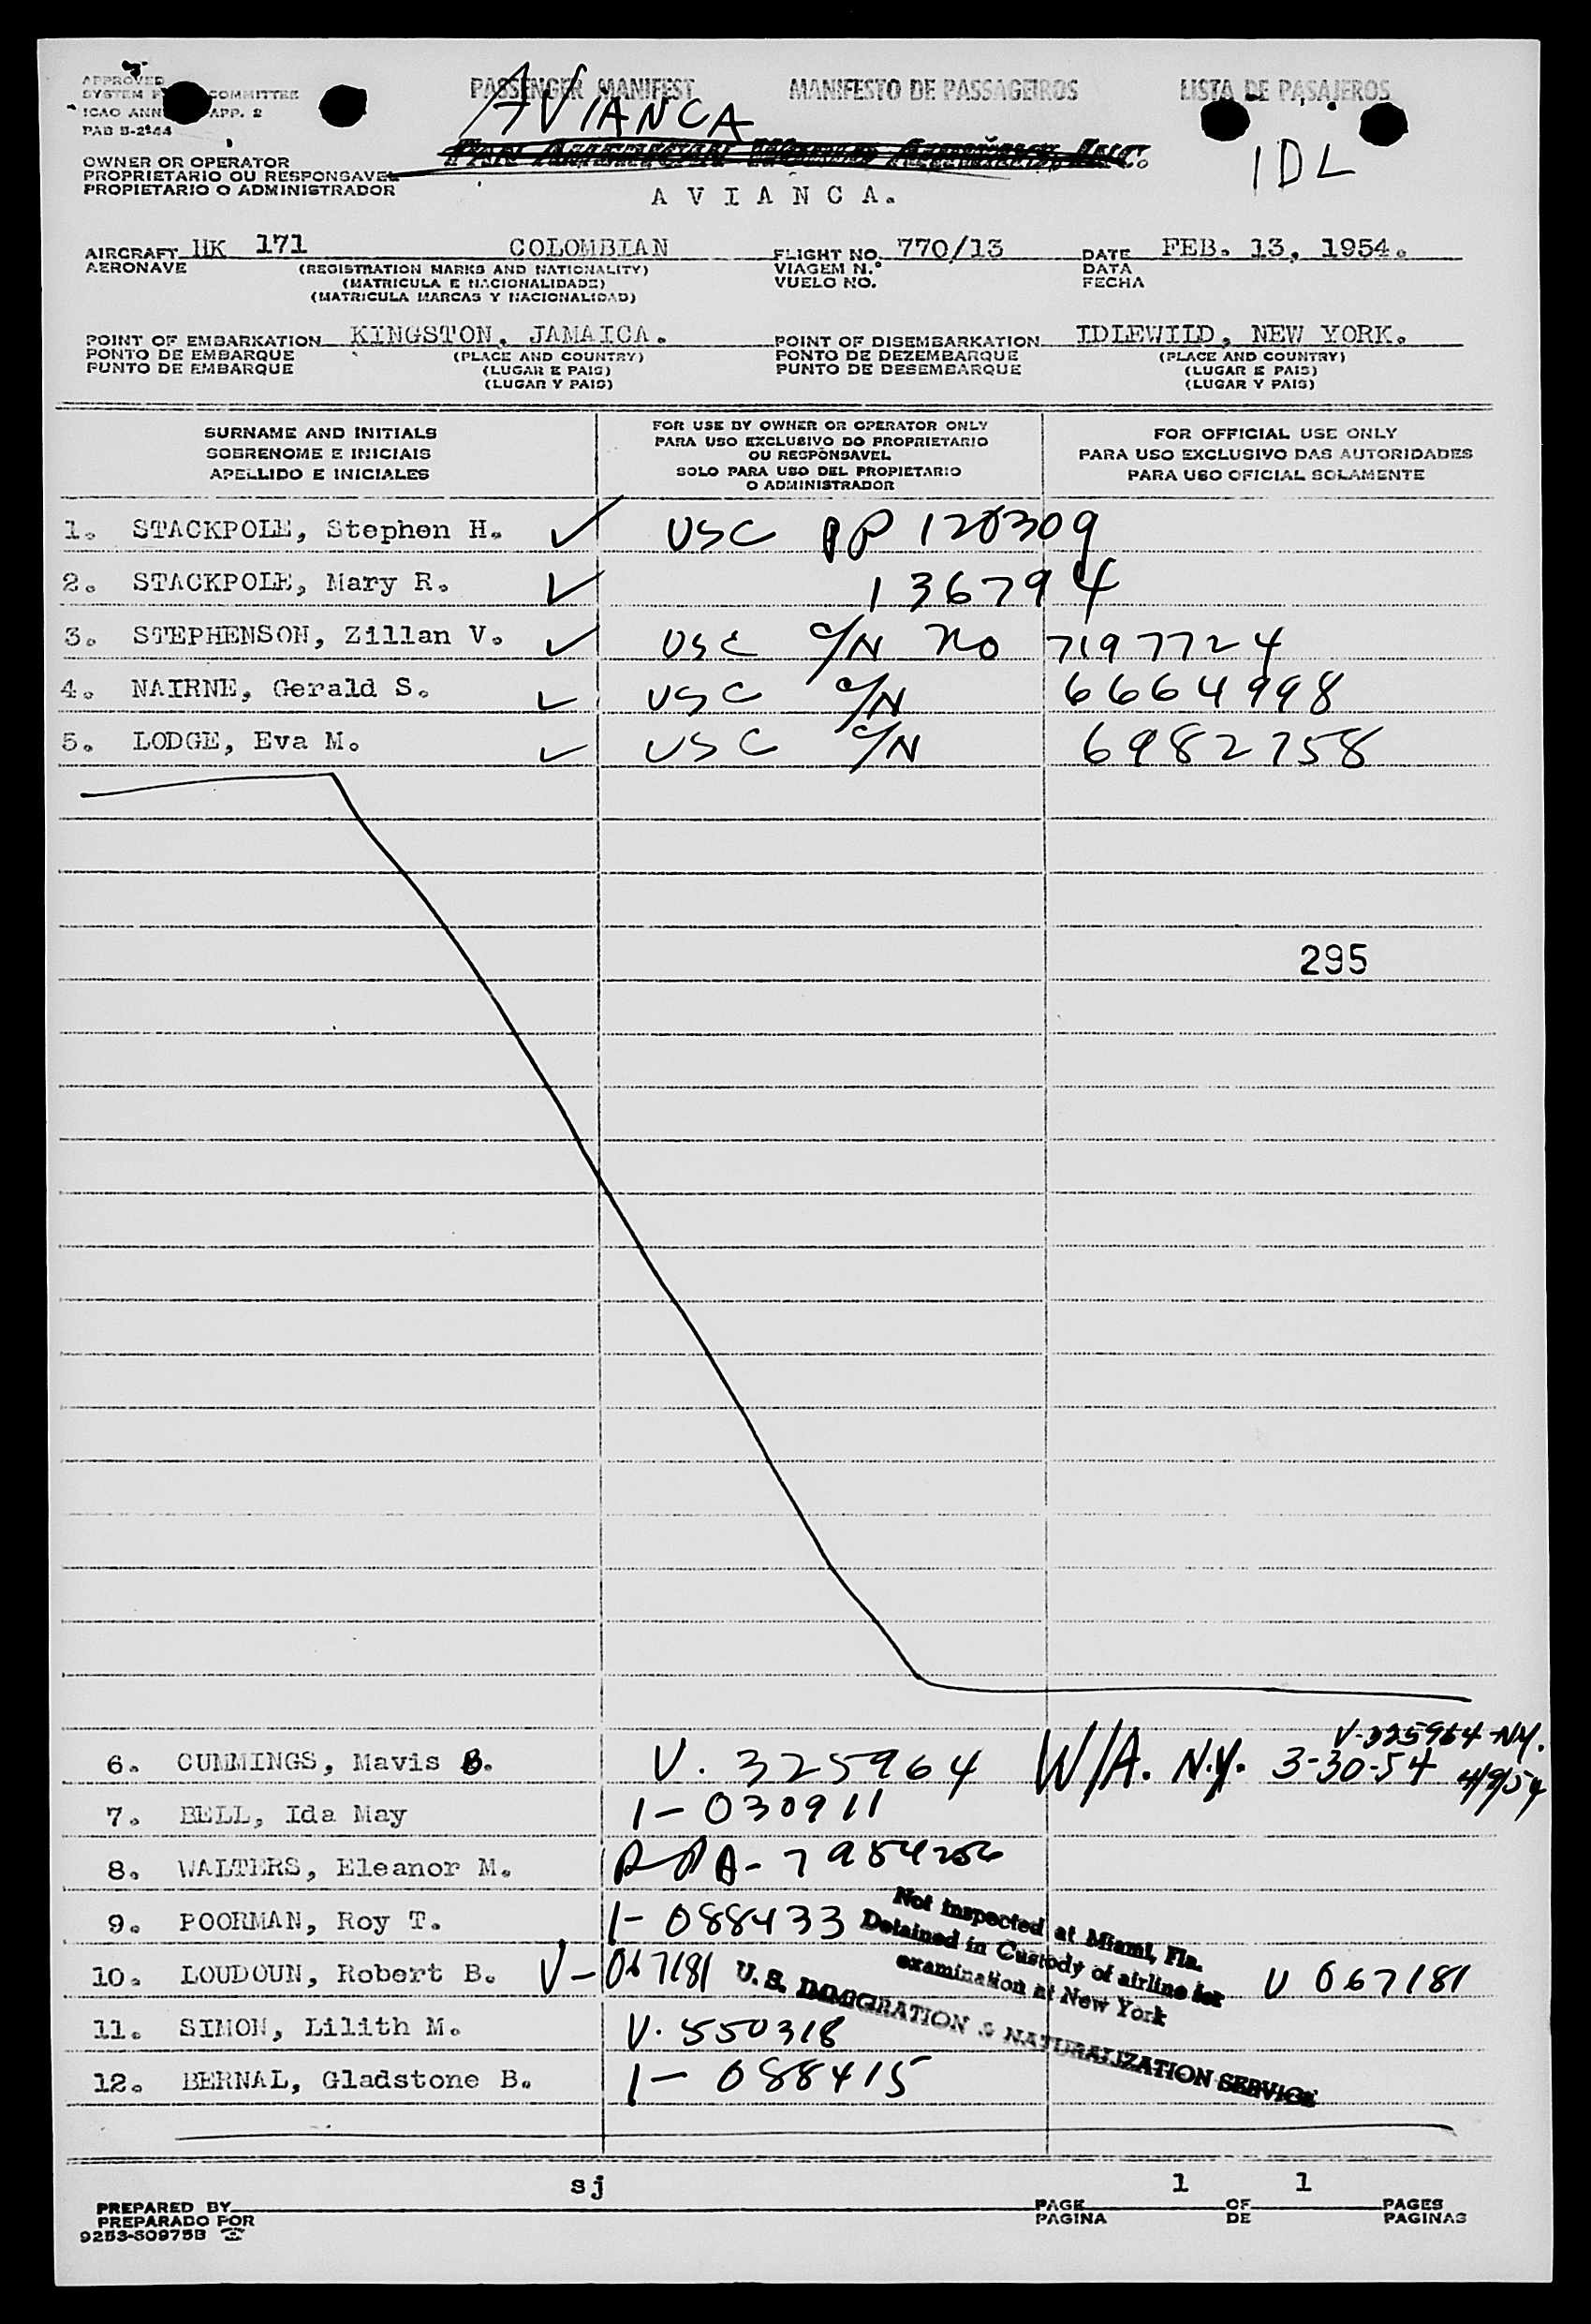 APPROVED
SYSTEM COMMITTEE
ICAO ANN APP. 2
PAB B-2144
PASSENGER MANIFEST MANIFESTO DE PASSAGEIROS LISTA DE PASAJEROS
AVIANCA
IDL
OWNER OR OPERATOR PAN AMERICAN WORLD AIRWAYS, INC.
PROPRIETARIO OU RESPONSAVEL
PROPIETARIO O ADMINISTRADOR
A V I A N C A.
AIRCRAFT HK 171 COLOMBIAN FLIGHT NO. 770/13 DATE FEB. 13, 1954.
AERONAVE (REGISTRATION MARKS AND NATIONALITY) VIAGEM N.° DATA
(MATRICULA E NACIONALIDADE) VUELO NO. FECHA
(MATRICULA MARCAS Y NACIONALIDAD)
POINT OF EMBARKATION KINGSTON, JAMAICA. POINT OF DISEMBARKATION IDLEWILD, NEW YORK.
PONTO DE EMBARQUE (PLACE AND COUNTRY) PONTO DE DEZEMBARQUE (PLACE AND COUNTRY)
PUNTO DE EMBARQUE (LUGAR E PAIS) PUNTO DE DESEMBARQUE (LUGAR E PAIS)
(LUGAR Y PAIS) (LUGAR Y PAIS)
SURNAME AND INITIALS
SOBRENOME E INICIAIS
APELLIDO E INICIALES
FOR USE BY OWNER OR OPERATOR ONLY
PARA USO EXCLUSIVO DO PROPRIETARIO
OU RESPONSAVEL
SOLO PARA USO DEL PROPIETARIO
O ADMINISTRADOR
FOR OFFICIAL USE ONLY
PARA USO EXCLUSIVO DAS AUTORIDADES
PARA USO OFICIAL SOLAMENTE
1. STACKPOLE, Stephen H. ✓ USC PP 120309
2. STACKPOLE, Mary R. ✓ 136794
3. STEPHENSON, Zillan V. ✓ USC C/N no 7197724
4. NAIRNE, Gerald S. ✓ USC C/N 6664998
5. LODGE, Eva M. ✓ USC C/N 6982758
295
V-325964 NY.
6. CUMMINGS, Mavis B. V. 325964 W/A. N.Y. 3-30-54 4/9/54
7. BELL, Ida May 1-030911
8. WALTERS, Eleanor M. A-7984256
9. POORMAN, Roy T. 1-088433
10. LOUDOUN, Robert B. V-067181 V 067181
11. SIMON, Lilith M. V. 550318
12. BERNAL, Gladstone B. 1-088415
Not inspected at Miami, Fla.
Detained in Custody of airline for
examination at New York
U. S. IMMIGRATION & NATURALIZATION SERVICE
sj 1 1
PREPARED BY PAGE OF PAGES
PREPARADO POR PAGINA DE PAGINAS
9253-S0975B